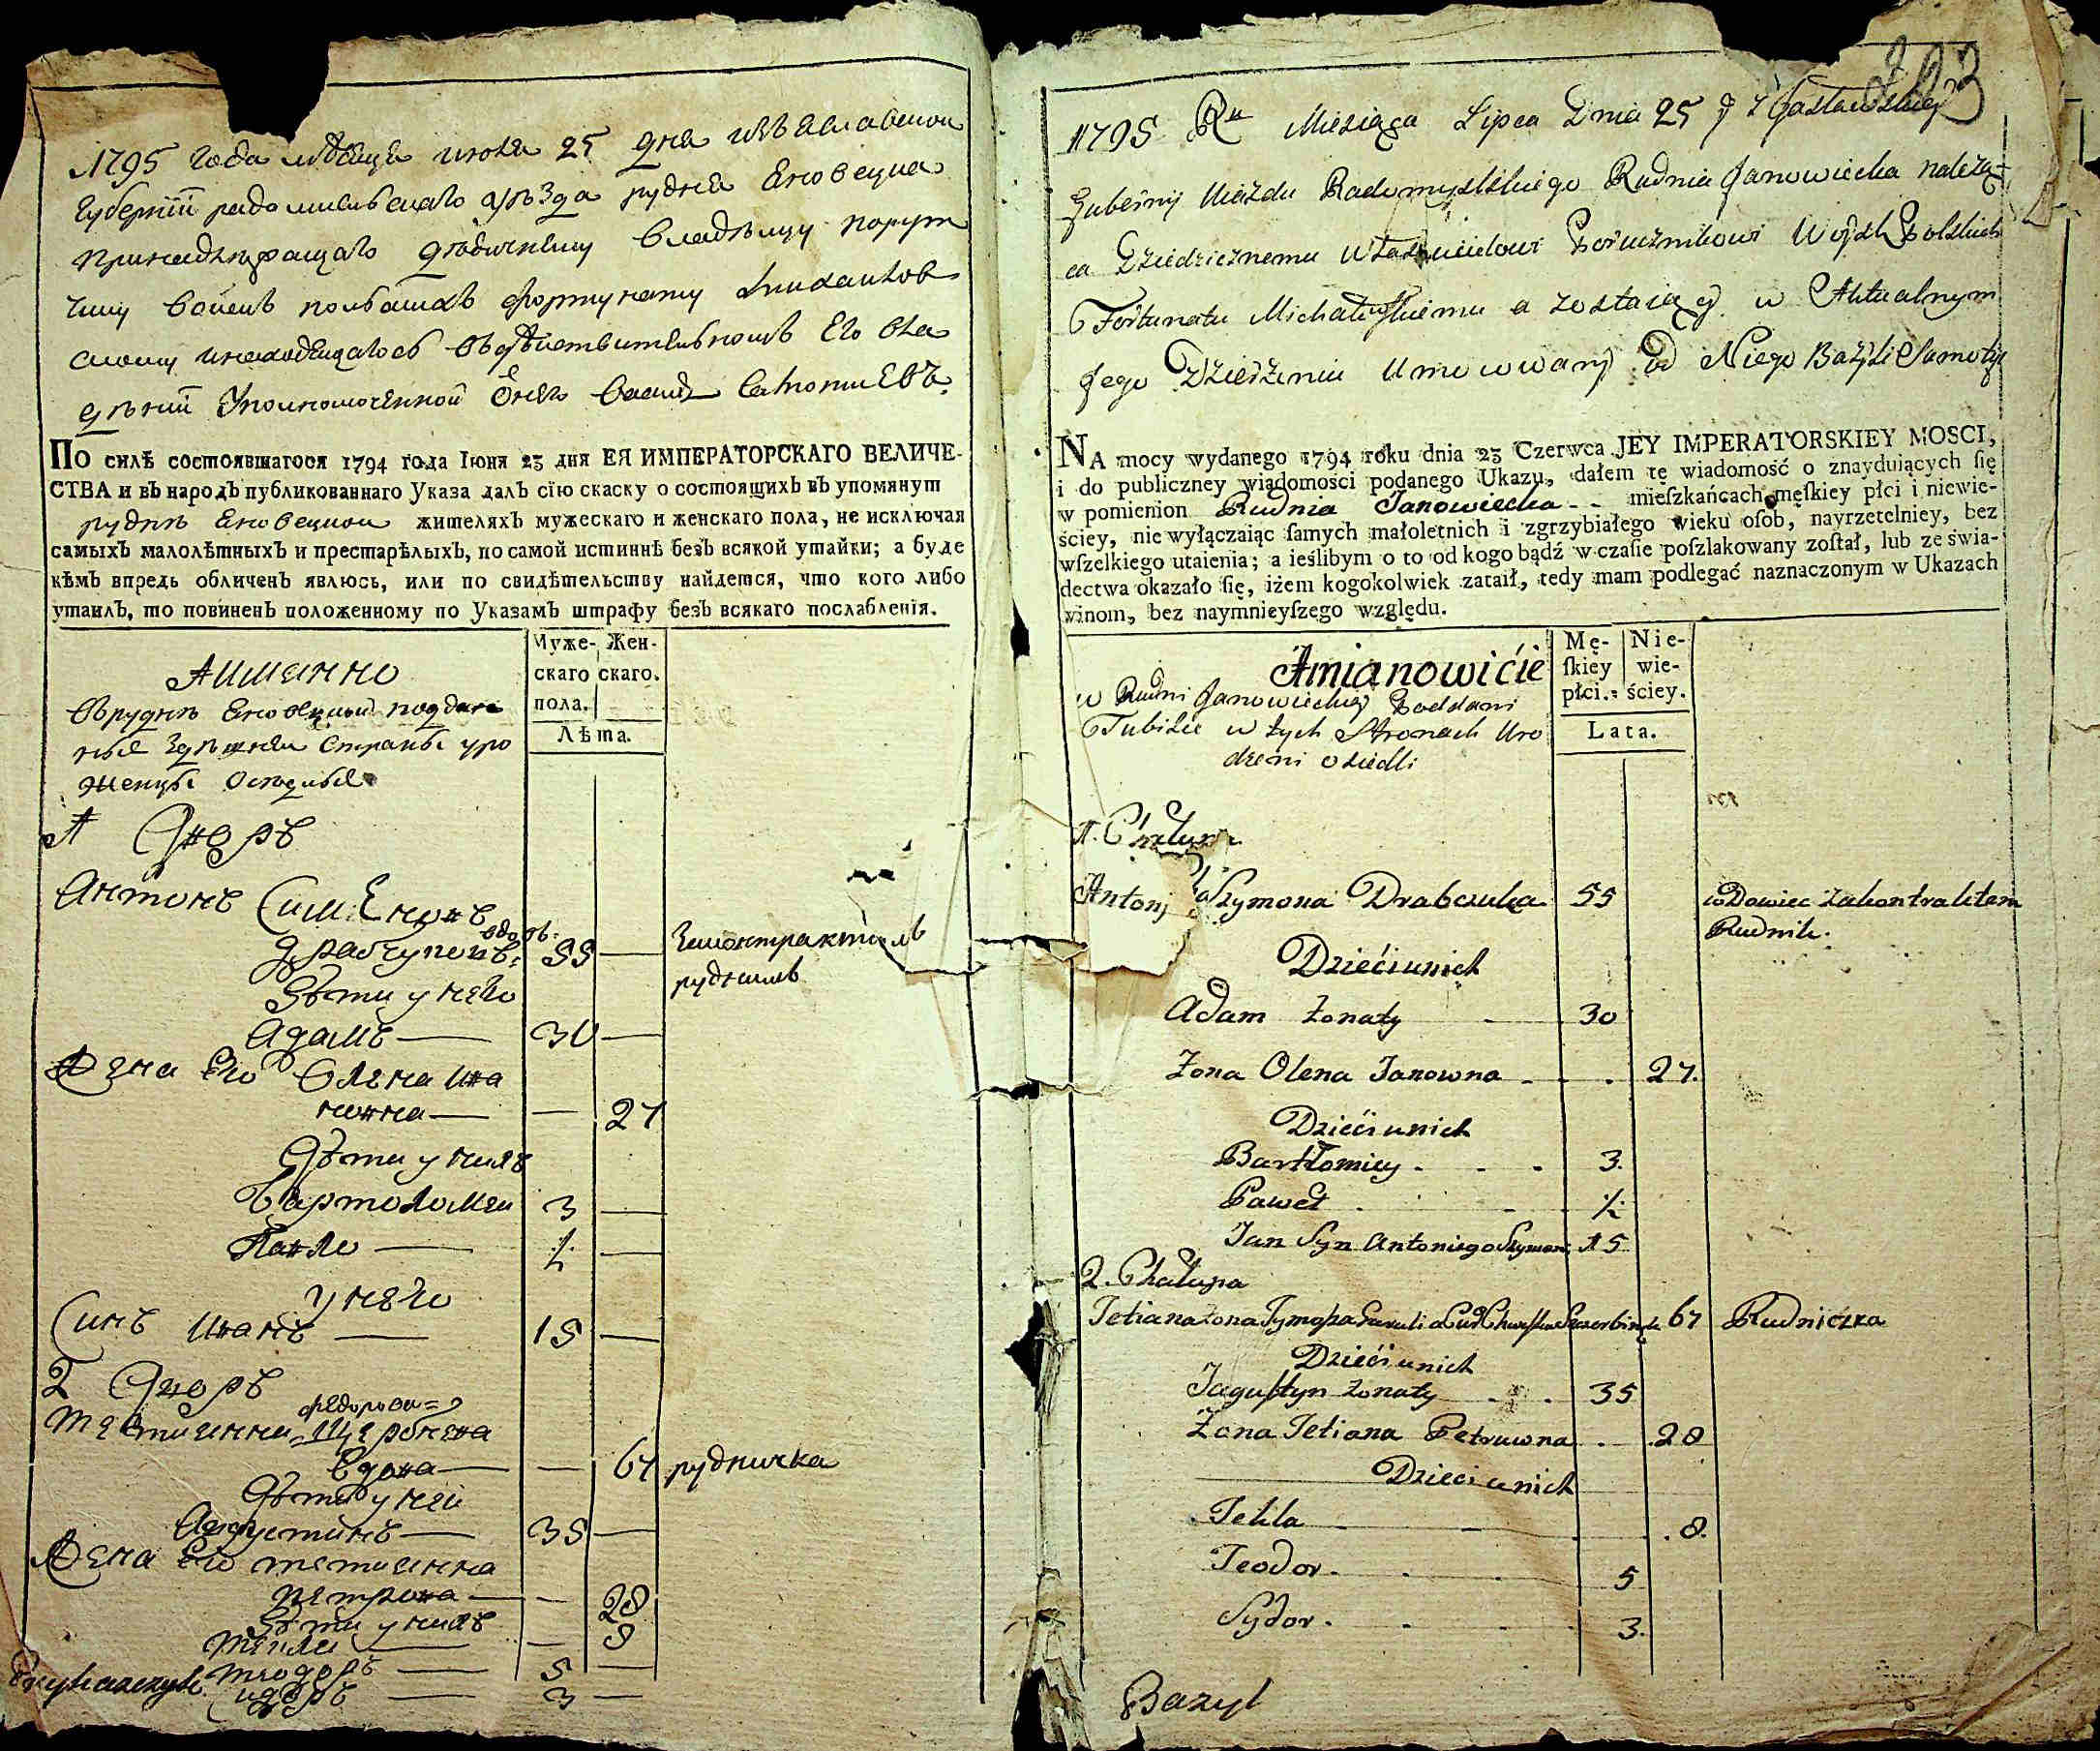 1795 года мѣсяца июля 25 дня изъяславской
Губернїи радомисльскаго уѣзда рудня Яновецка
принадлежащаго дѣдичному владѣлцу поруч
чику войскъ польскихъ фортунату Михалков
скому находящагось въдѣйствительномъ Его вла
дѣнии Уполномоченной Онаго Василъ
По силѣ состоявшагося 1794 года Іюня 23 дня ЕЯ ИМПЕРАТОРСКАГО ВЕЛИЧЕ-
СТВА и въ народъ публикованнаго Указа далъ сїю скаску о состоящихъ въ упомянут
руднѣ Яновецкой жителяхъ мужескаго и женскаго пола, не исключая
самыхъ малолѣтныхъ и престарѣлыхъ, по самой истиннѣ безъ всякой утайки; а буде
кѣмъ впредь обличенъ явлюсь, или по свидѣтельству найдется, что кого либо
утаилъ, то повиненъ положенному по Указамъ штрафу безъ всякаго послабленїя.
Муже- Жен-
скаго скаго.
пола.
Лѣта.
Аимянно
Въруднѣ Яновецкой поддан
ные Здѣшнея Страны уро
женцы Оседлые
1 Дворъ
Антонъ Сименовъ
вдов:
драбчукокъ: 55 — Законтрактомъ
рудникъ
Дѣти у него
Адамъ — 30 —
Жена Его Олена Ива
новна — — 27
Дѣти у нихъ
Бартоломей 3 —
Павло — ½ —
у него
Синъ Иванъ — 15 —
2 Дворъ
федорова
Тетиянна Щербнева
Вдова — — 67 рудничка
Дѣти у ней
Августинъ — 35 —
Жена Его тетиянна
петрова — — 28
Дѣти у нихъ
Текля — — 8
теодоръ — 5 —
Сидоръ — 3 —
203
1795 Ru Miesiąca Lipca Dnia 25 z Izasławskiey
Gubernij Uiazdu Radomyslskiego Rudnia Janowiecka należą-
ca Dziedzicznemu Właścicielowi Porucznikowi Woysk Polskich
Fortunatu Michałowskiemu a zostaiącey w Aktualnym
Jego Dzierżeniu Umocowany Od Niego Bazyli
NA mocy wydanego 1794 roku dnia 23 Czerwca JEY IMPERATORSKIEY MOSCI,
i do publiczney wiadomości podanego Ukazu, dałem tę wiadomość o znayduiących ſię
w pomienion Rudnia Janowiecka - - mieſzkańcach męſkiey płci i niewie-
ściey, nie wyłączaiąc ſamych małoletnich i zgrzybiałego wieku oſob, nayrzetelniey, bez
wſzelkiego utaienia; a ieślibym o to od kogo bądź w czaſie poſzlakowany zoſtał, lub ze świa-
dectwa okazało ſię, iżem kogokolwiek zataił, tedy mam podlegać naznaczonym w Ukazach
winom, bez naymnieyſzego względu.
Mę- Nie-
ſkiey wie-
płci. ściey.
Lata.
Amianowićie
w Rudni Janowieckiey Poddani
Tubilce w tych Stronach Uro
dzeni osiedli
1. Chałupa
Antonj Szymona Drabczuka 55 wDowiec zakontraktem
Rudnik.
Dzieći unich
Adam żonaty - 30
Żona Olena Janowna - . . 27.
Dzieći unich
Bartłomiey . - . 3.
Paweł . - . ½
Jan Syn Antoniego Szymona 15
2. Chałupa
Tetiana żona 67 Rudniczka
Dzieći unich
Jaguſtyn żonaty . . 35
Żona Tetiana Petruwna . . 28
Dzieci unich
Tekla . . 8.
Teodor . . . 5
Sydor . . . 3.
Bazyl